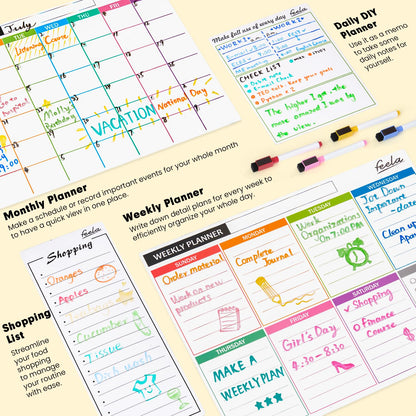 July
TUE
WED
THU
FRI
Listening Course
Molly
Birthday
VACATION
National Day
Make full use of every day
foola
WORKS
CHECK LIST
The higher I go the
more amazed I was by
the view.
Daily DIY
Planner
Use it as a memo
to take some
daily notes for
yourself.
Monthly Planner
Make a schedule or record important events for your whole month
to have a quick view in one place.
Weekly Planner
Write down detail plans for every week to
efficiently organize your whole day.
foola
WEEKLY PLANNER
SUNDAY
Order material
Work on new
products
MONDAY
Complete
Journal
TUESDAY
Work
Organizations
On 7:00 PM
WEDNESDAY
Jot Down
Important
-date
Clean up
THURSDAY
MAKE A
WEEKLY PLAN
FRIDAY
Girl's Day
4:30-8:30
SATURDAY
Shopping
Finance
Course
foola
Shopping
Oranges
Apples
Cucumber
Tissue
Dish wash
Shopping
List
Streamline
your food
shopping
to manage
your routine
with ease.